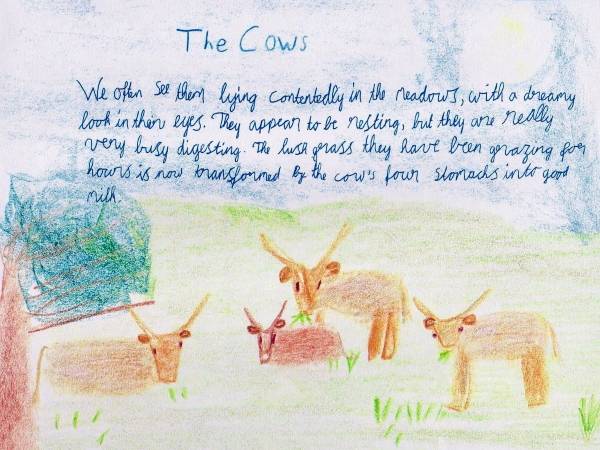 The Cows
We often see them lying contentedly in the meadows, with a dreamy
look in their eyes. They appear to be resting, but they are really
very busy digesting. The lush grass they have been grazing for
hours is now transformed by the cow's four stomachs into good
milk.